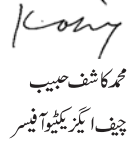 محمد کاشف حبیب
چیف ایگزیکٹیو آفیسر